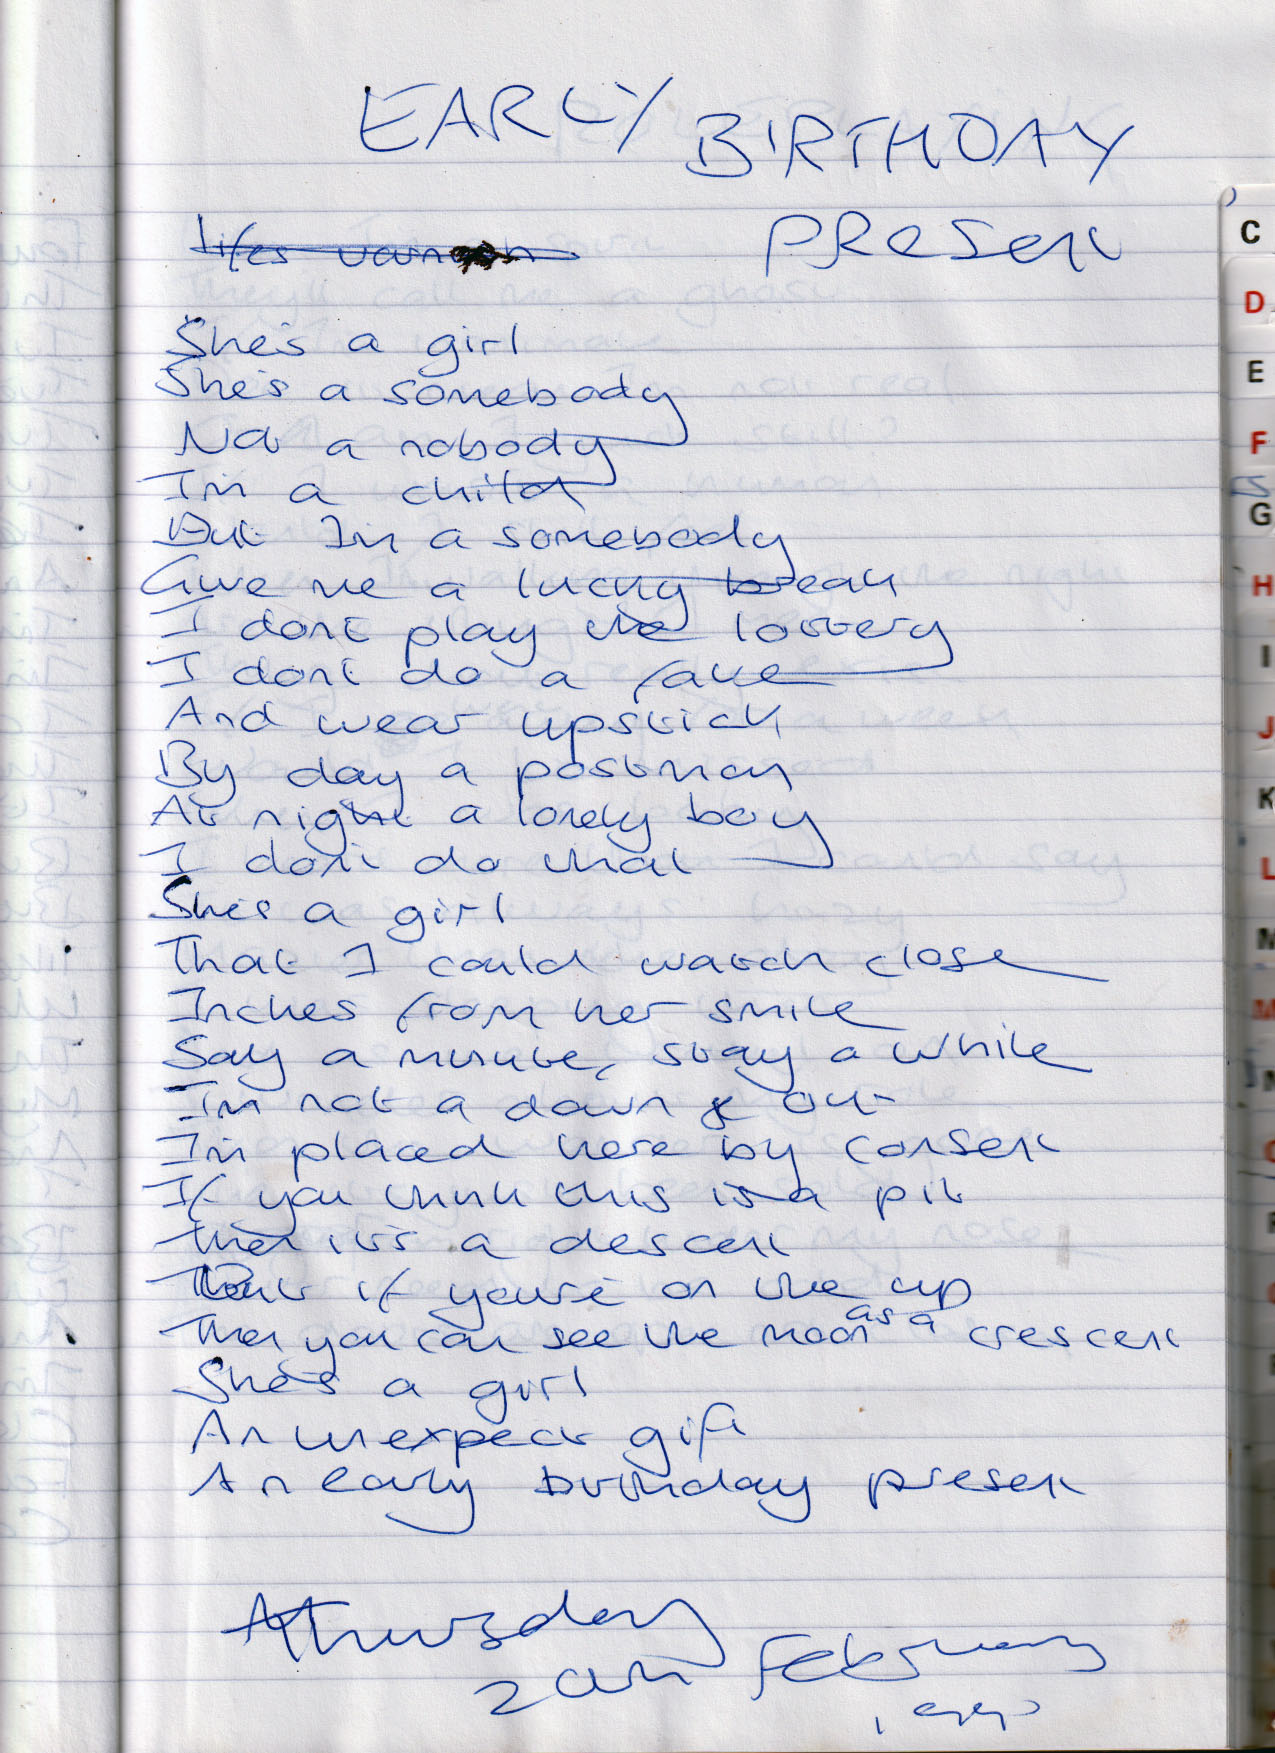 EARLY BIRTHDAY
PRESENT
She's a girl
She's a somebody
Not a nobody
I'm a child
But I'm a somebody
Give me a lucky break
I dont play the lottery
I dont do a rave
And wear lipstick
By day a postman
At night a lonely boy
I dont do what
She's a girl
That I could watch close
Inches from her smile
Say a minute, stay a while
I'm not a down & out
I'm placed here by consent
If you think this is a pit
then it's a descent
But if you're on the up
Then you can see the moon as a crescent
She's a girl
An unexpect gift
An early birthday present
Thursday
February
C
D
E
F
G
H
I
J
K
L
M